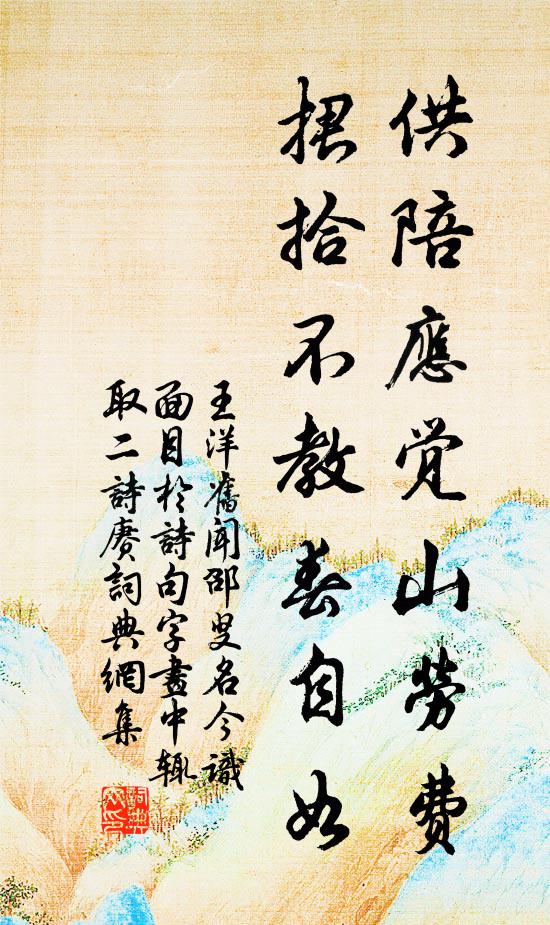 供陪應覺山勞費
捃拾不教春自如
王洋舊聞邵叟名今識
面目於詩句字畫中輒
取二詩賡詞典網集